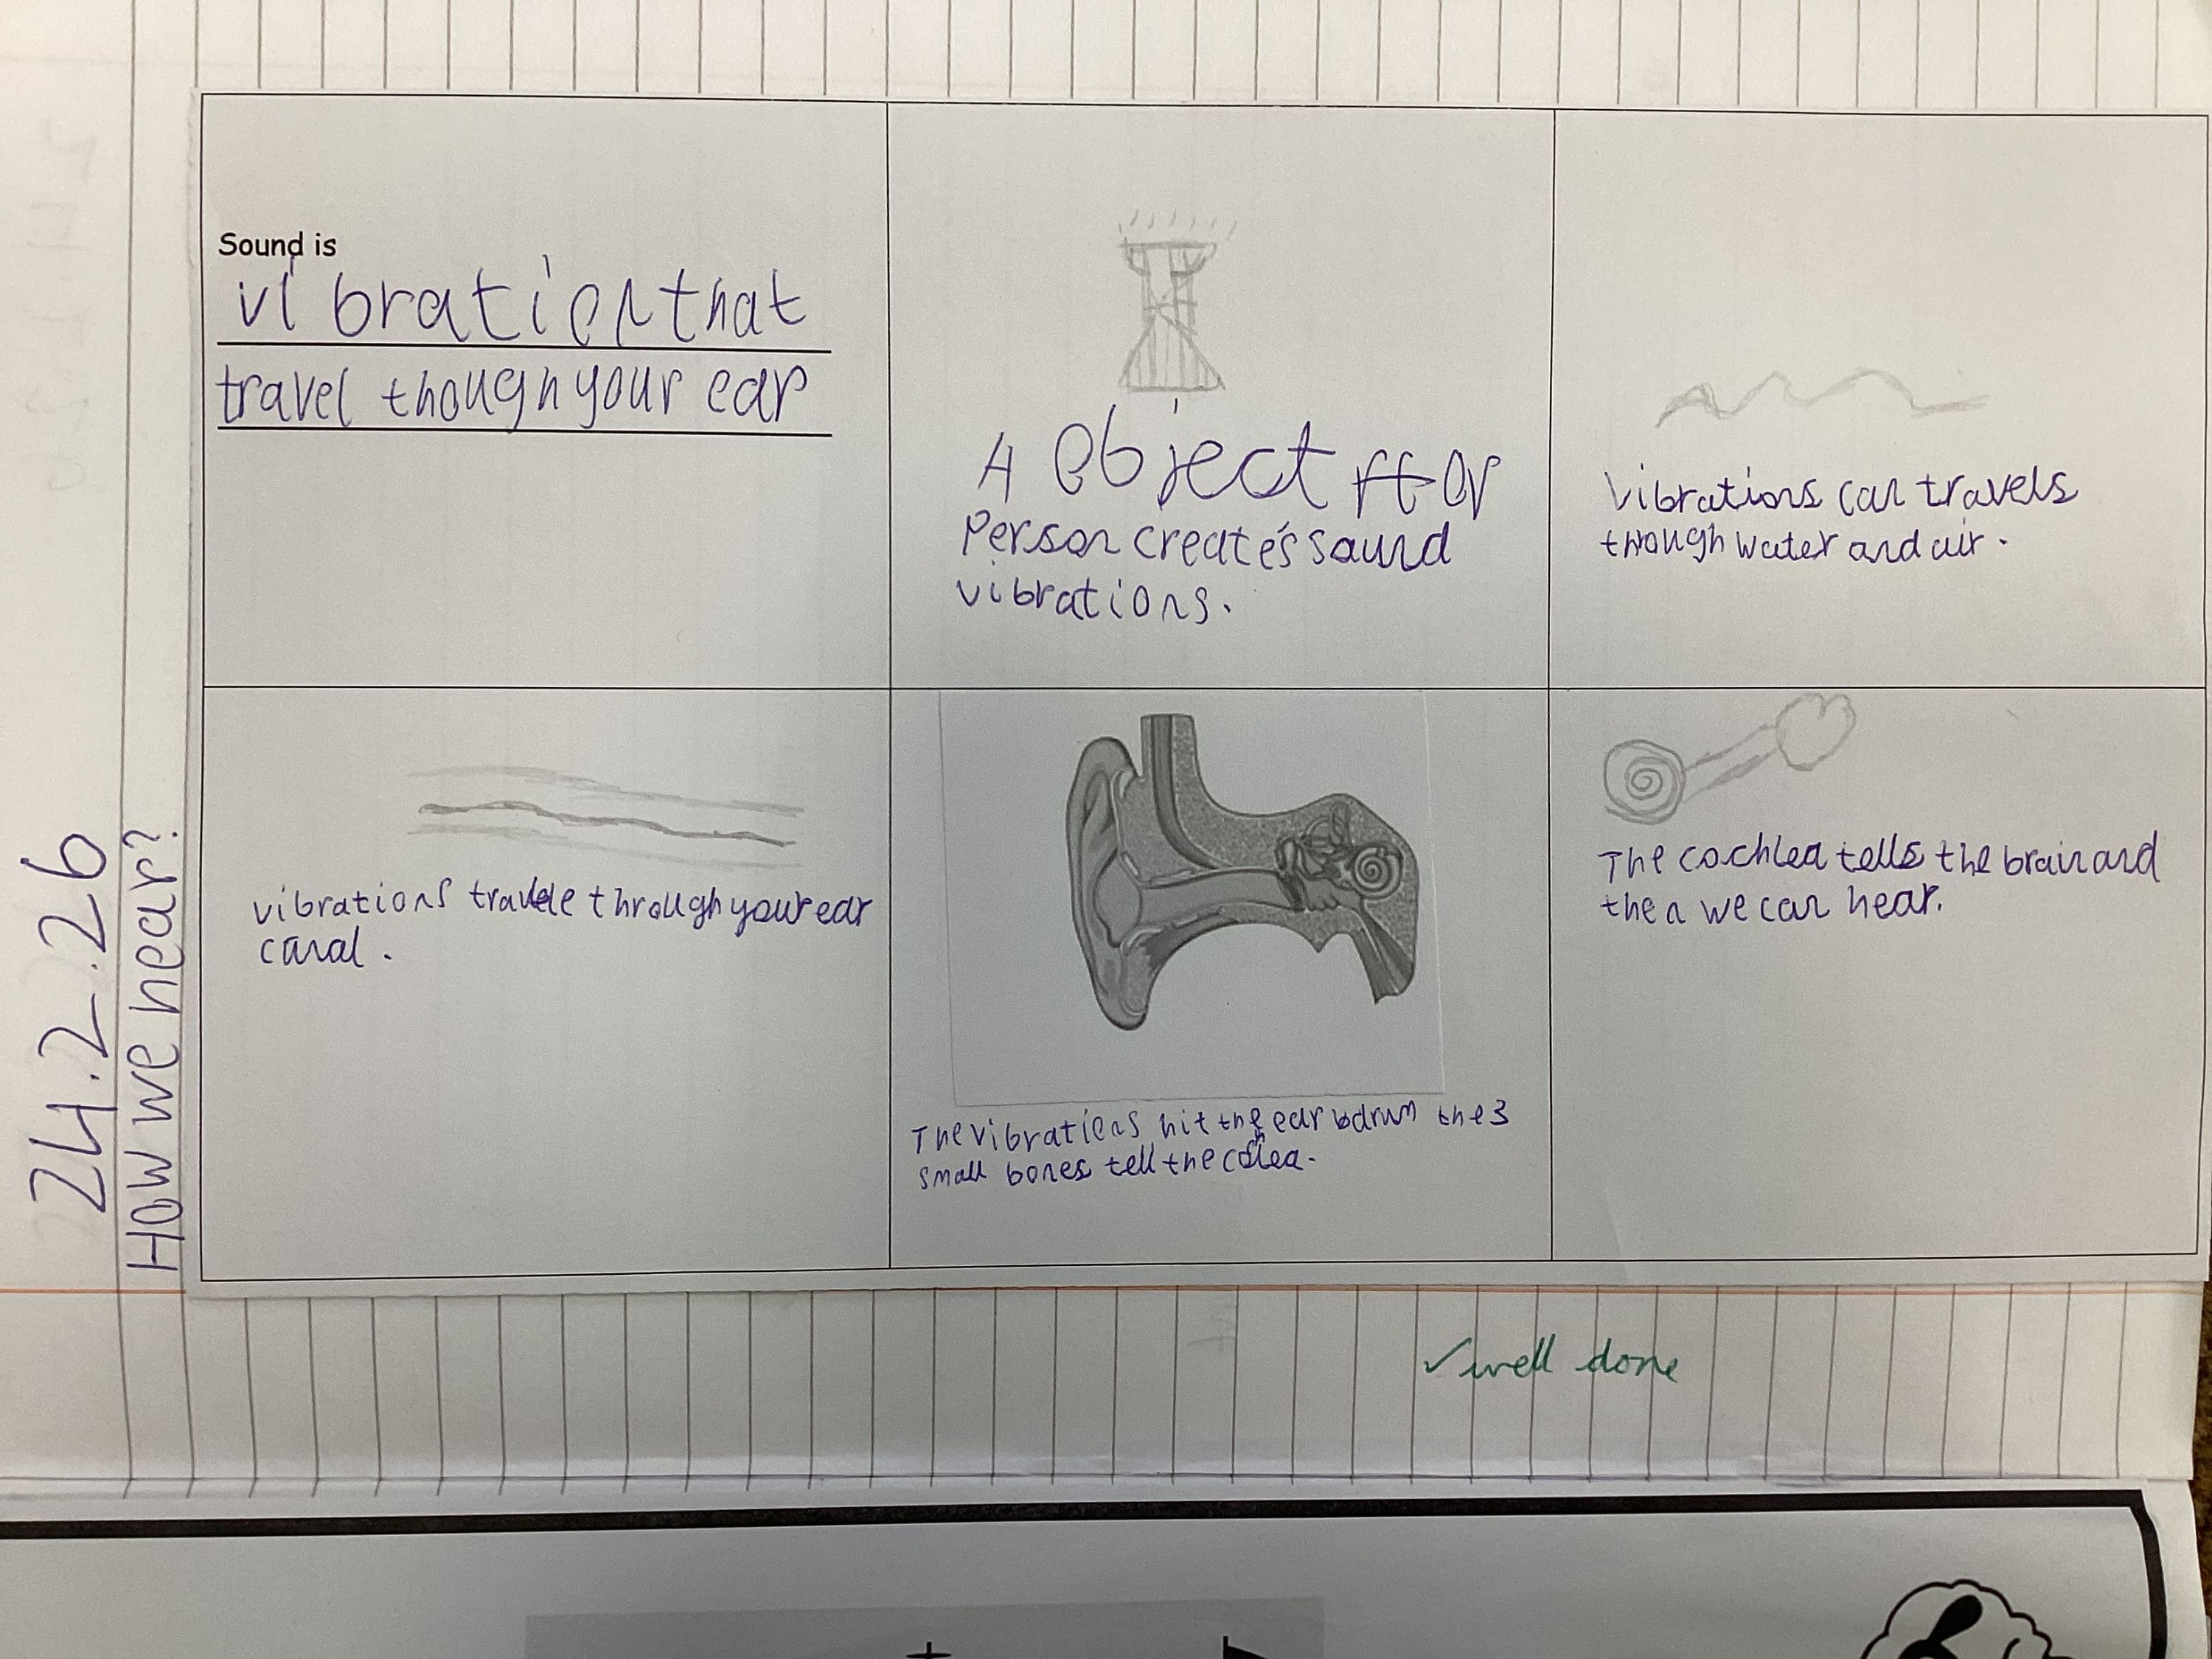 24.2.26
How we hear?
Sound is
vibration that
travel thoughn your ear
A object or
Person creates sound
vibrations.
Vibrations can travels
thoughh water and air.
vibrations travele through your ear
canal.
The vibrations hit the ear drum the 3
small bones tell the cochlea.
The cochlea tells the brain and
then we can hear.
✓ well done